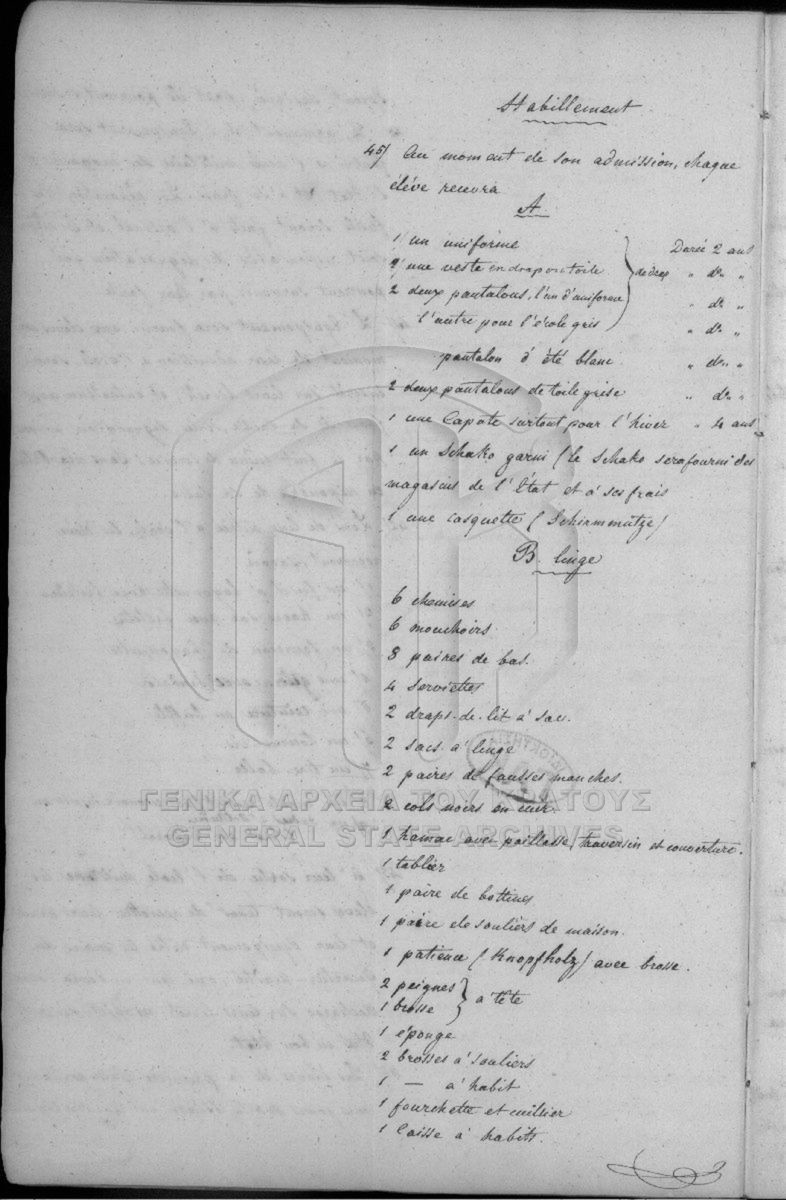 Habillement
45/ Au moment de son admission, chaque
élève recevra
A
1/ un uniforme } de drap Durée 2 ans
2/ une veste en drap ou toile " do "
2 deux pantalons, l'un d'uniforme " do "
l'autre pour l'école gris " do "
pantalon d'été blanc " do "
2 deux pantalons de toile grise " do "
1 une Capote surtout pour l'hiver " 4 ans
1 un Schako garni (le Schako sera fourni des
magasins de l'État et à ses frais
1 une casquette (Schirmmütze)
B. linge
6 chemises
6 mouchoirs
8 paires de bas.
4 serviettes
2 draps-de-lit à sac.
2 sacs à linge
2 paires de fausses manches.
2 cols noirs en cuir.
1 hamac avec paillasse, traversin et couverture.
1 tablier
1 paire de bottines
1 paire de souliers de maison.
1 patience (Knopfholz) avec brosse.
2 peignes } à tête
1 brosse
1 éponge
2 brosses à souliers
1 — à habit
1 fourchette et cuillier
1 Caisse à habits.
ΓΕΝΙΚΑ ΑΡΧΕΙΑ ΤΟΥ ΚΡΑΤΟΥΣ
GENERAL STATE ARCHIVES